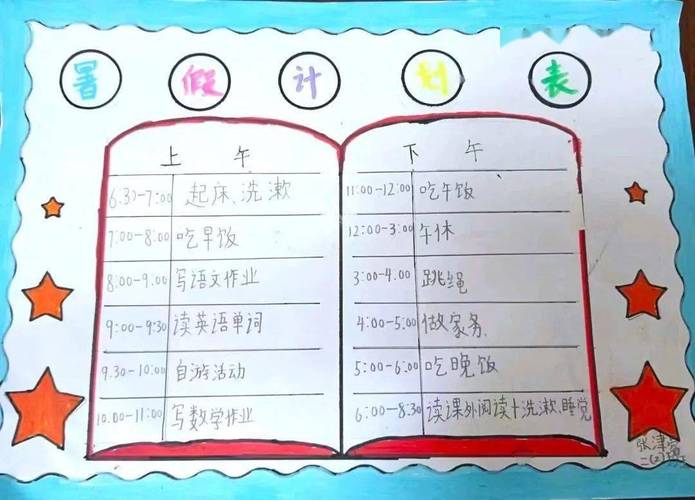 暑假计划表
上午
6:30-7:00 起床、洗漱
7:00-8:00 吃早饭
8:00-9:00 写语文作业
9:00-9:30 读英语单词
9:30-10:00 自游活动
10:00-11:00 写数学作业
下午
11:00-12:00 吃午饭
12:00-3:00 午休
3:00-4:00 跳绳
4:00-5:00 做家务
5:00-6:00 吃晚饭
6:00-8:30 读课外阅读+洗漱、睡觉
张津
二(2)班